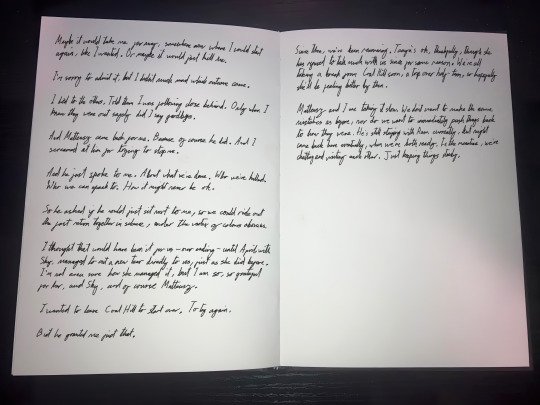 Maybe it would take me far away, somewhere new where I could start
again, like I wanted. Or maybe it would just kill me.
I'm sorry to admit it, but I didn't much mind which outcome came.
I lied to the others. Told them I was following close behind. Only when I
knew they were out safely did I say goodbye.
And Mateusz came back for me. Because of course he did. And I
screamed at him for trying to stop me.
And he just spoke to me. About what we've done. Who we've killed.
Who we can speak to. How it might never be ok.
So he asked if he could just sit next to me, so we could ride out
the last return together in silence, under the vortex of colours above us.
I thought that would have been it for us - our ending - until April, with
Sky, managed to cut a new tear directly to us, just as she did before.
I'm not even sure how she managed it, but I am so, so grateful
for her, and Sky, and of course Mateusz.
I wanted to leave Coal Hill to start over. To try again.
But he granted me just that.
Since then, we've been recovering. Tanya's ok, thankfully, though she
has refused to talk much with us since for some reason. We're all
taking a break from Coal Hill soon, a trip over half-term, so hopefully
she'll be feeling better by then.
Mateusz and I are taking it slow. We don't want to make the same
mistakes as before, nor do we want to immediately push things back
to how they were. He's still staying with Ram currently, but might
come back here eventually, when we're both ready. In the meantime, we're
chatting and visiting each other. Just keeping things steady.